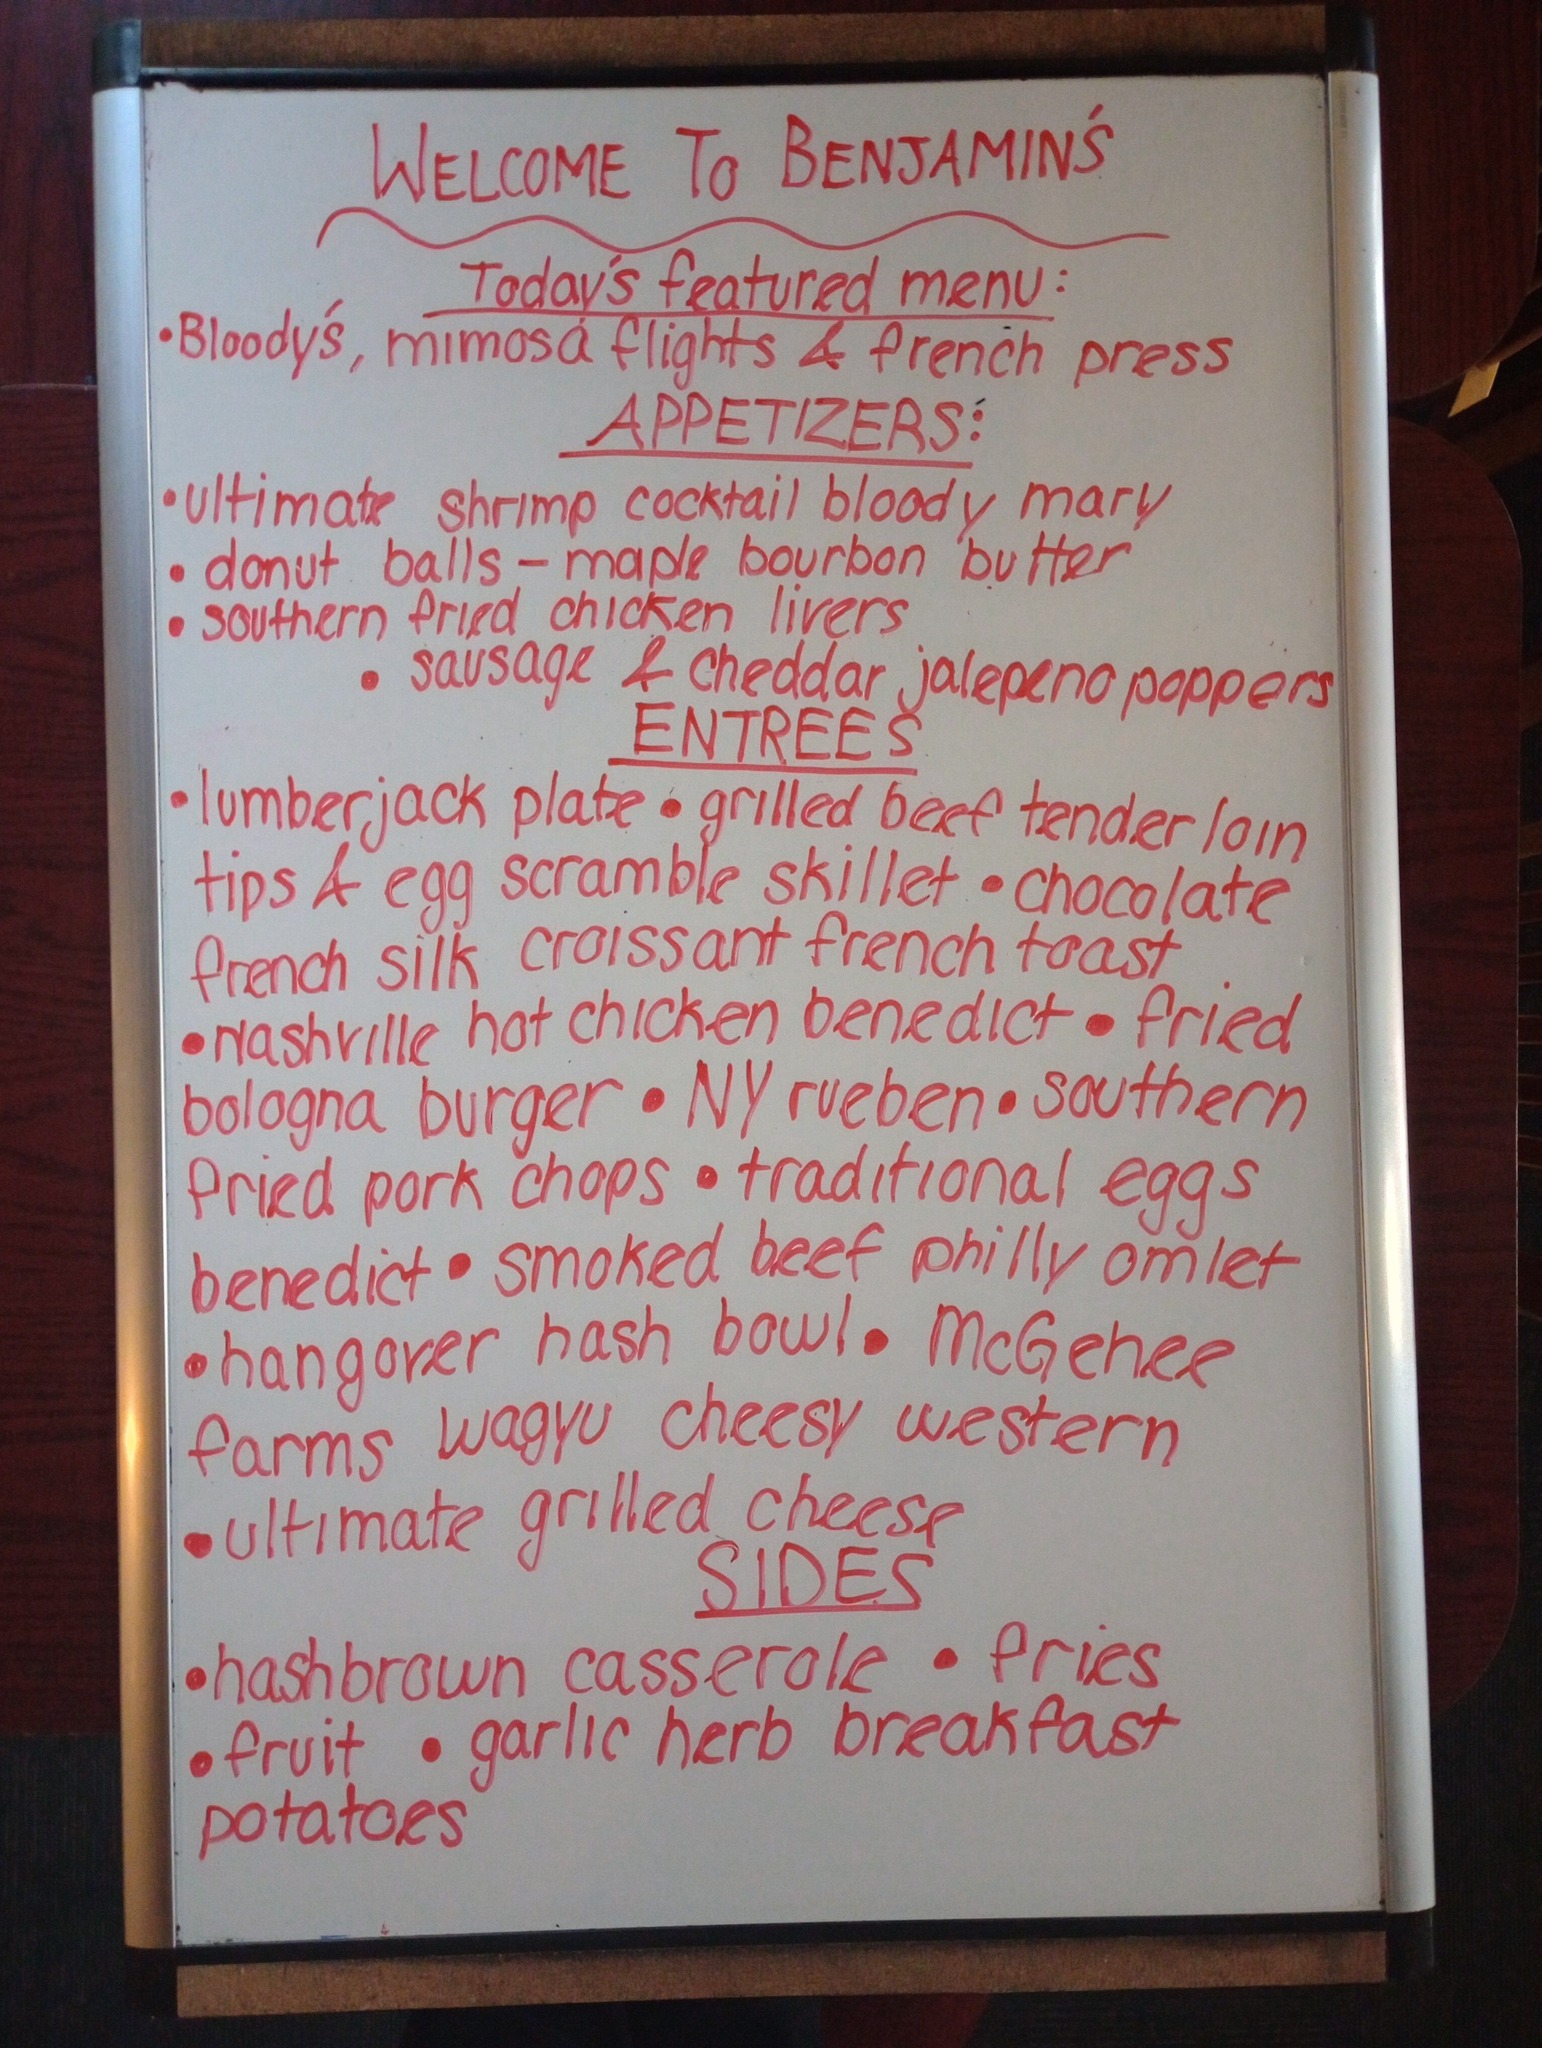 WELCOME TO BENJAMIN'S
Today's featured menu:
•Bloody's, mimosa flights & french press
APPETIZERS:
•ultimate shrimp cocktail bloody mary
• donut balls – maple bourbon butter
• southern fried chicken livers
• sausage & cheddar jalepeno poppers
ENTREES
•lumberjack plate • grilled beef tenderloin
tips & egg scramble skillet • chocolate
french silk croissant french toast
•Nashville hot chicken benedict • fried
bologna burger • NY rueben • southern
fried pork chops • traditional eggs
benedict • smoked beef philly omlet
•hangover hash bowl • McGehee
farms wagyu cheesy western
•ultimate grilled cheese
SIDES
•hashbrown casserole • fries
•fruit • garlic herb breakfast
potatoes